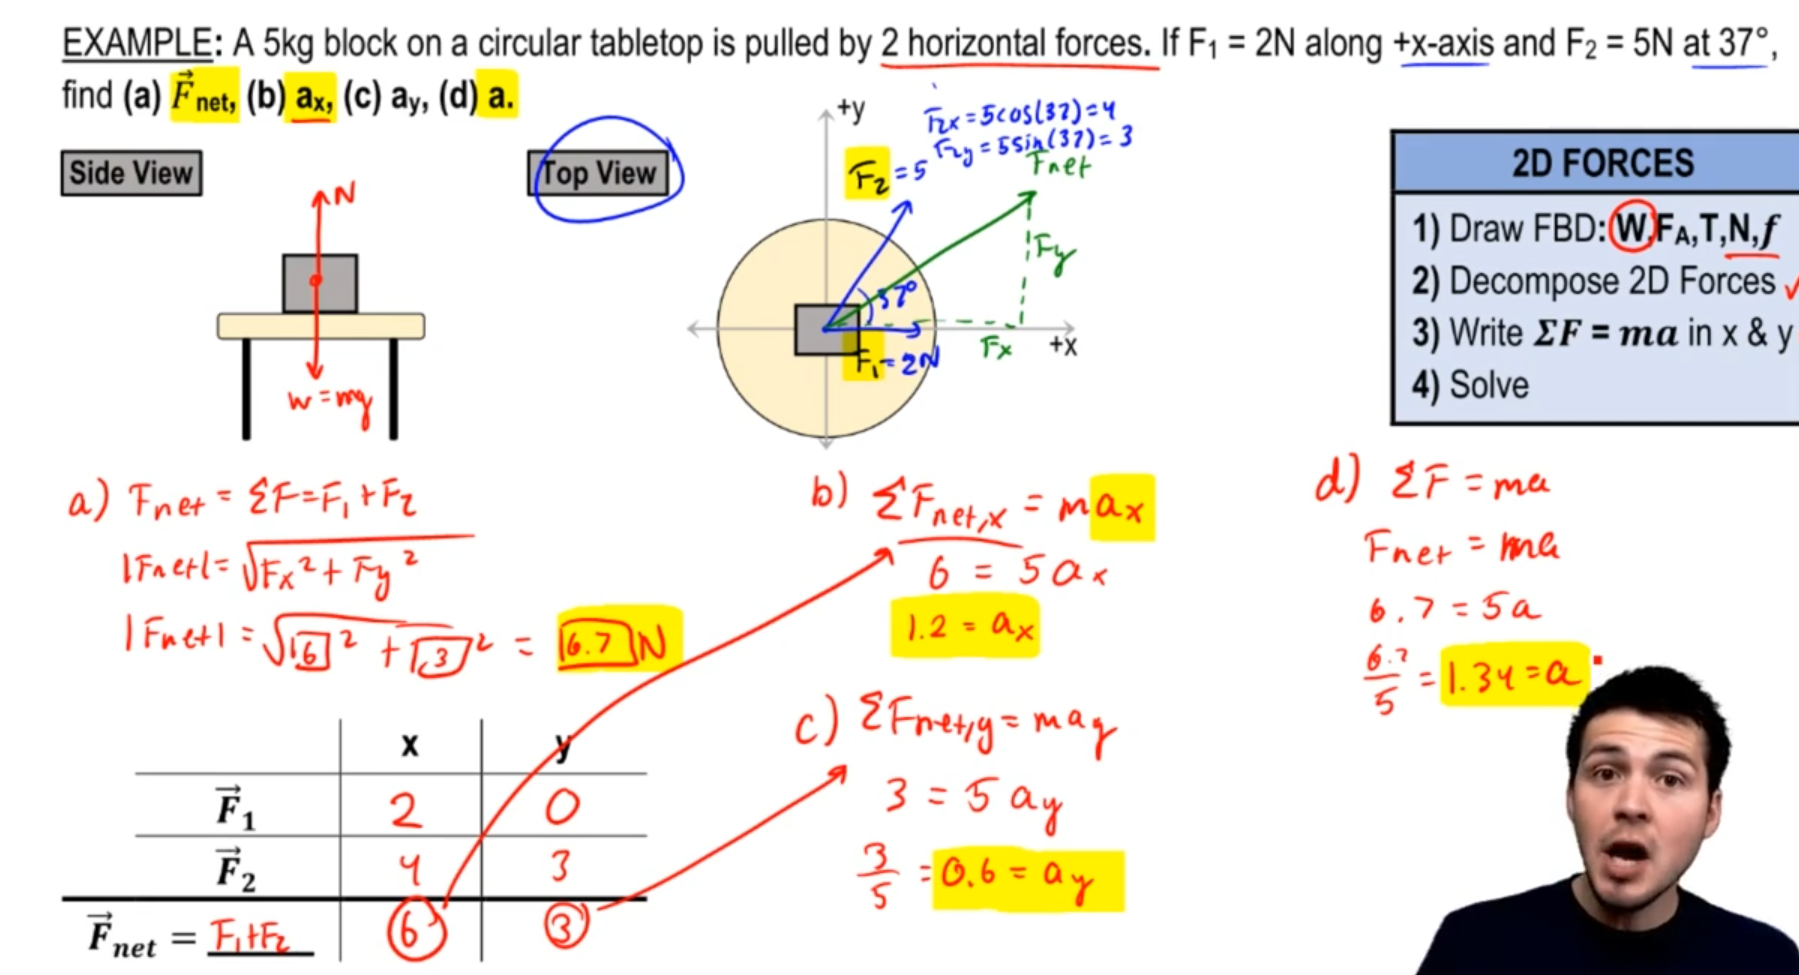 EXAMPLE: A 5kg block on a circular tabletop is pulled by 2 horizontal forces. If F₁ = 2N along +x-axis and F₂ = 5N at 37°,
find (a) F⃗net, (b) ax, (c) ay, (d) a.
Side View
N
w = mg
Top View
+y
F₂x = 5cos(37) = 4
F₂y = 5sin(37) = 3
F₂ = 5
Fnet
Fy
37°
F₁ = 2N
Fx
+x
2D FORCES
1) Draw FBD: W,FA,T,N,f
2) Decompose 2D Forces ✓
3) Write ΣF = ma in x & y
4) Solve
a) Fnet = ΣF = F₁ + F₂
|Fnet| = √Fx² + Fy²
|Fnet| = √6² + 3² = 6.7 N
x y
F⃗₁ 2 0
F⃗₂ 4 3
F⃗net = F₁+F₂ 6 3
b) ΣFnet,x = max
6 = 5ax
1.2 = ax
c) ΣFnet,y = may
3 = 5ay
3/5 = 0.6 = ay
d) ΣF = ma
Fnet = ma
6.7 = 5a
6.7/5 = 1.34 = a